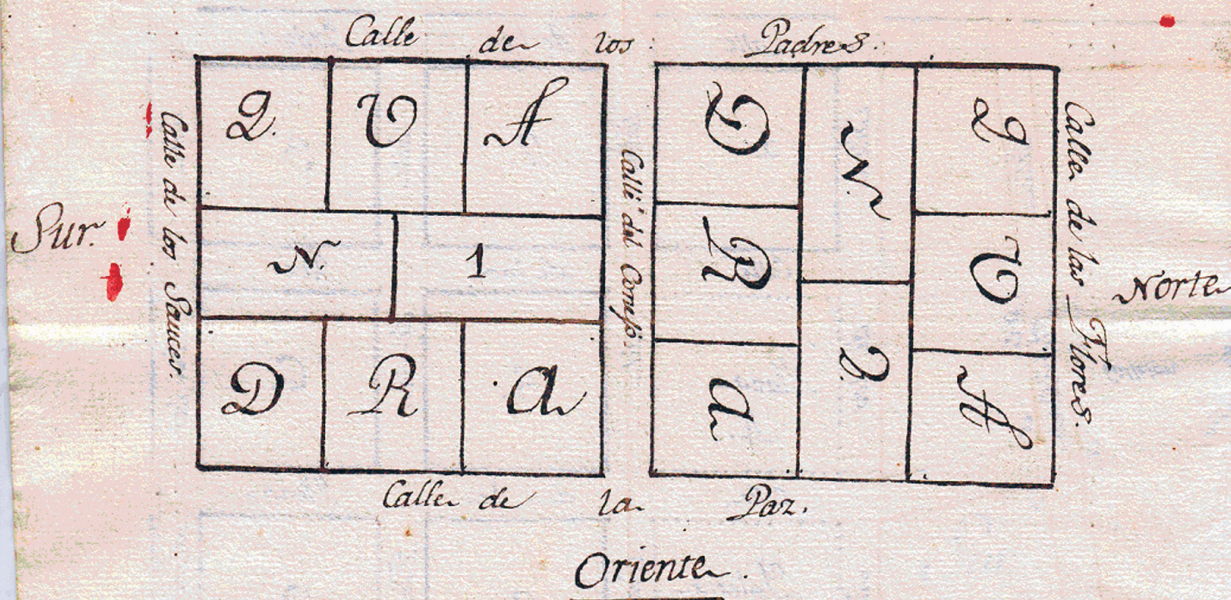 Calle de los Padres.
Calle de los Sauces.
Sur.
Q. U A
N. 1
D R A
Calle del Conejo.
Q U A
N. 2.
D R A
Calle de las Flores.
Norte
Calle de la Paz.
Oriente.